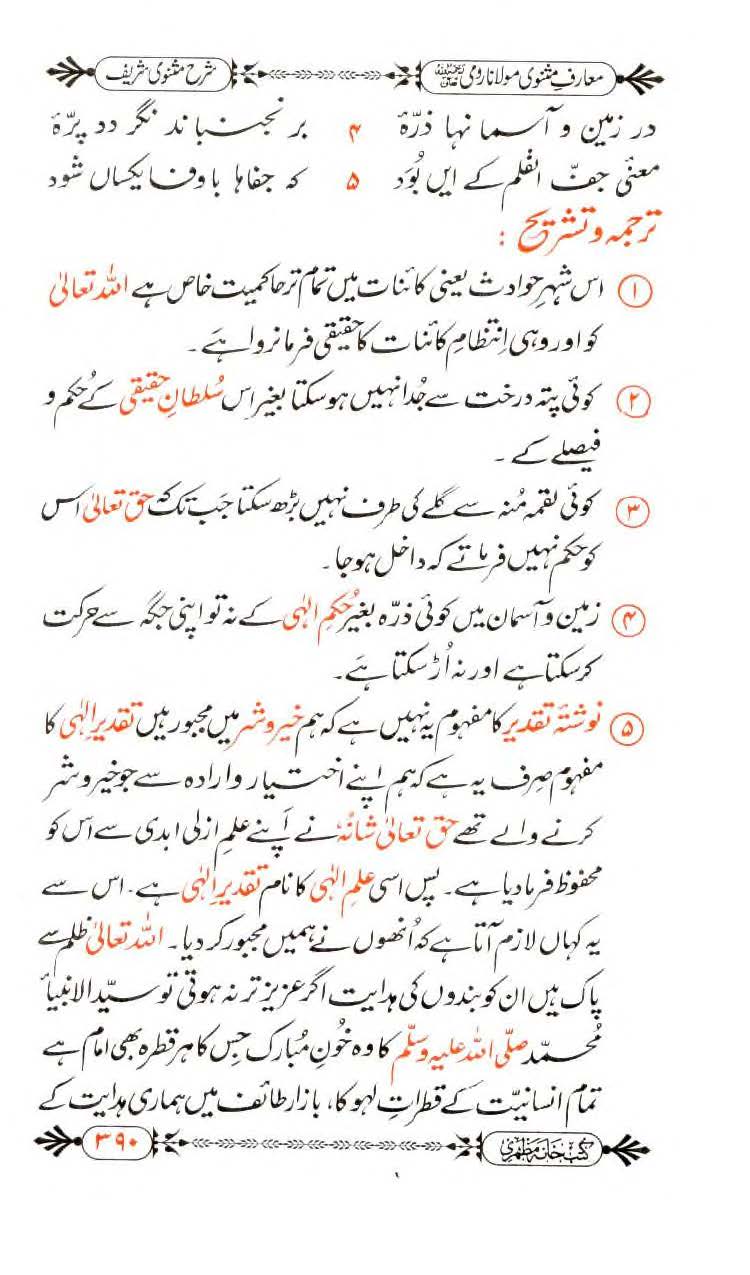 معارفِ مثنوی مولانا رومی رحمۃ اللہ علیہ شرح مثنوی شریف
در زمین و آسما نہا ذرّۂ ۴ بر نجنباند نگر دد پرّۂ
معنیٔ جفّ القلم کے ایں بُوَد ۵ کہ جفاہا باوفا یکساں شود
ترجمہ و تشریح :
۱ اس شہرِ حوادث یعنی کائنات میں تمام تر حاکمیت خاص ہے اللہ تعالیٰ
کو اور وہی اِنتظامِ کائنات کا حقیقی فرمانروا ہے۔
۲ کوئی پتہ درخت سے جُدا نہیں ہوسکتا بغیر اس سُلطانِ حقیقی کے حُکم و
فیصلے کے ۔
۳ کوئی لقمہ مُنہ سے گلے کی طرف نہیں بڑھ سکتا جب تک کہ حق تعالیٰ اس
کو حکم نہیں فرماتے کہ داخل ہوجا۔
۴ زمین و آسمان میں کوئی ذرّہ بغیر حُکمِ الٰہی کے نہ تو اپنی جگہ سے حرکت
کرسکتا ہے اور نہ اُڑ سکتا ہے۔
۵ نوشتۂ تقدیر کا مفہوم یہ نہیں ہے کہ ہم خیر و شر میں مجبور ہیں تقدیرِ الٰہی کا
مفہوم صِرف یہ ہے کہ ہم اپنے اختیار و ارادہ سے جو خیر و شر
کرنے والے تھے حق تعالیٰ شانُہٗ نے اَپنے علمِ ازلی ابدی سے اس کو
محفوظ فرما دیا ہے۔ پس اسی علمِ الٰہی کا نام تقدیرِ الٰہی ہے۔ اس سے
یہ کہاں لازم آتا ہے کہ اُنھوں نے ہمیں مجبور کر دیا۔ اللہ تعالیٰ ظلم سے
پاک ہیں ان کو بندوں کی ہدایت اگر عزیز تر نہ ہوتی تو سیّد الانبیأ
مُحمّد صلّی اللہ علیہ وسلّم کا وہ خُونِ مُبارک جِس کا ہر قطرہ بھی امام ہے
تمام انسانیّت کے قطراتِ لہو کا، بازارِ طائف میں ہماری ہدایت کے
کتب خانہ مظہری ۳۹۰